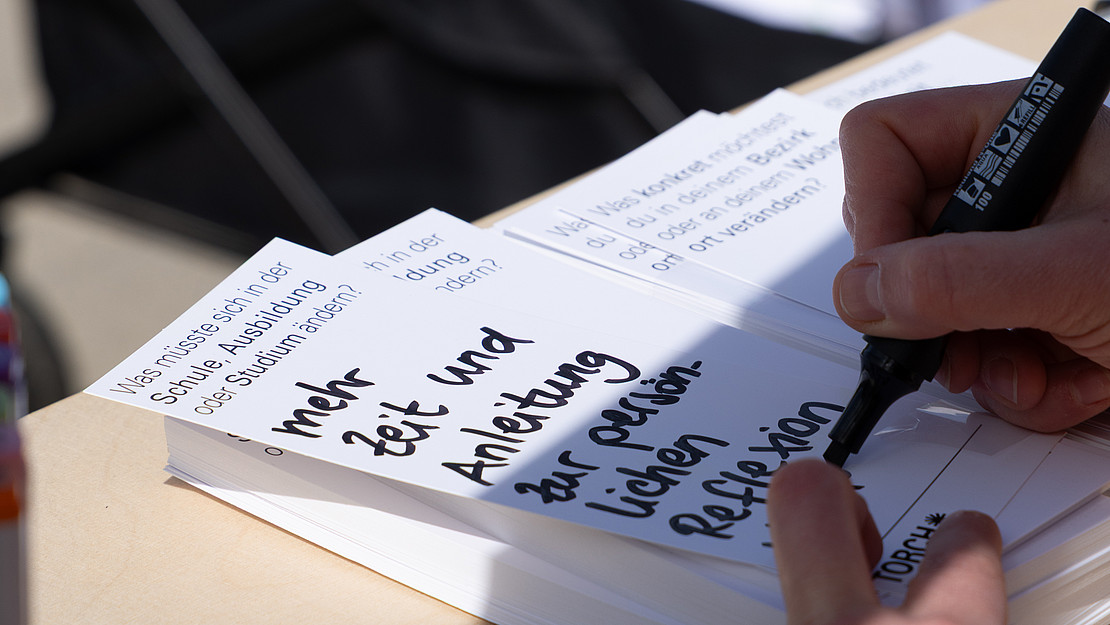 Was müsste sich in der
Schule, Ausbildung
oder Studium ändern?
mehr
Zeit und
Anleitung
zur persön-
lichen
Reflexion
TORCH*
h in der
ldung
ndern?
Was konkret möchtest
du in deinem Bezirk
oder an deinem Wohn
ort verändern?
Wa
du
ode
ort
100